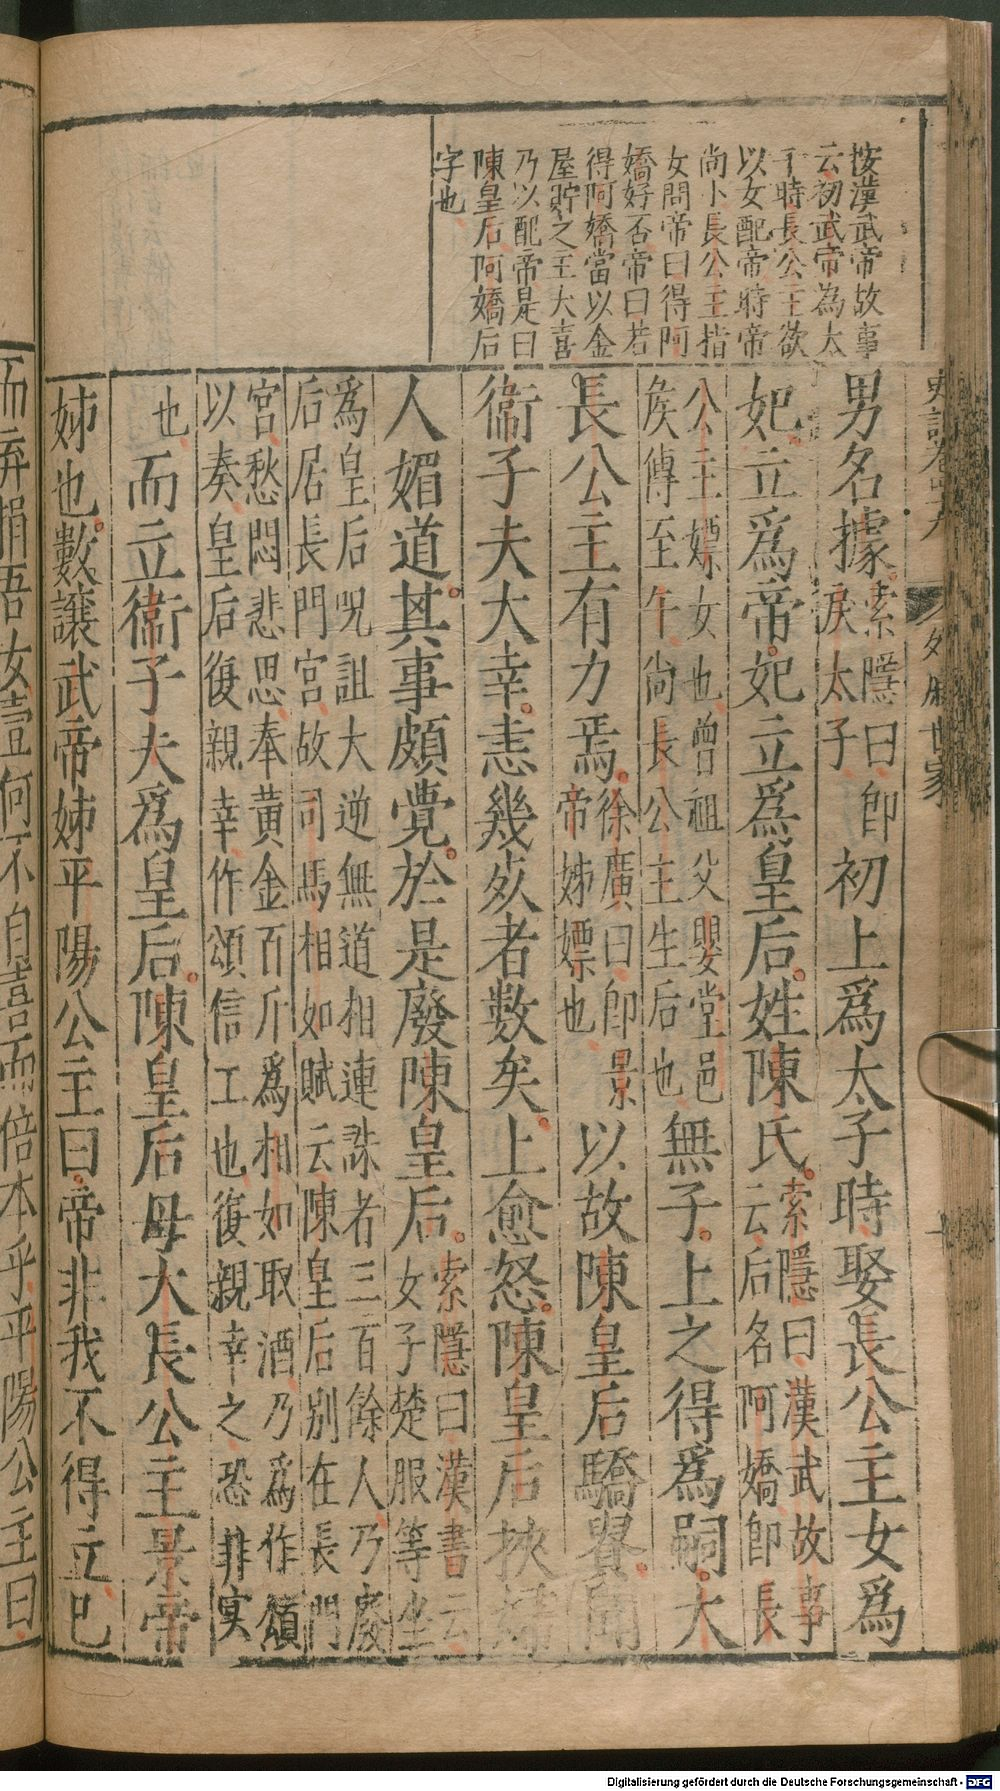 史記卷四十九 外戚世家
按漢武帝故事
云初武帝為太
子時長公主欲
以女配帝時帝
尚小長公主指
女問帝曰得阿
嬌好否帝曰若
得阿嬌當以金
屋貯之主大喜
乃以配帝是曰
陳皇后阿嬌后
字也
男名據索隱曰即戾太子初上爲太子時娶長公主女爲
妃立爲帝妃立爲皇后姓陳氏索隱曰漢武故事云后名阿嬌即長
公主嫖女也曾祖父嬰堂邑侯傳至午尚長公主生后也無子上之得爲嗣大
長公主有力焉徐廣曰即景帝姊嫖也以故陳皇后驕貴聞
衞子夫大幸恚幾死者數矣上愈怒陳皇后挾婦
人媚道其事頗覺於是廢陳皇后索隱曰漢書云女子楚服等坐
爲皇后呪詛大逆無道相連誅者三百餘人乃廢后居長門宮故司馬相如賦云陳皇后別在長門
宮愁悶悲思奉黃金百斤爲相如取酒乃爲作頌以奏皇后復親幸作頌信工也復親幸之恐非實
也而立衞子夫爲皇后陳皇后母大長公主景帝
姊也數讓武帝姊平陽公主曰帝非我不得立已
而弃捐吾女壹何不自喜而倍本乎平陽公主曰
Digitalisierung gefördert durch die Deutsche Forschungsgemeinschaft - DFG